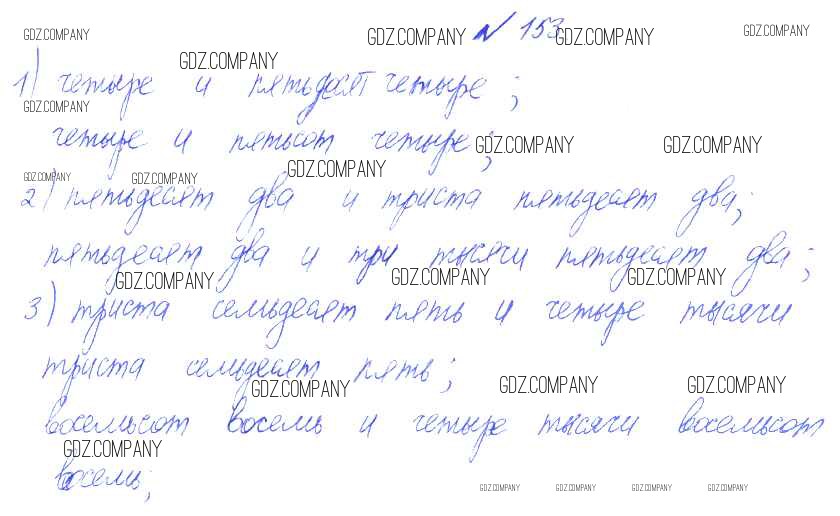 GDZ.COMPANY GDZ.COMPANY № 153 GDZ.COMPANY GDZ.COMPANY
GDZ.COMPANY
1) четыре и пятьдесят четыре;
GDZ.COMPANY
четыре и пятьсот четыре; GDZ.COMPANY GDZ.COMPANY
GDZ.COMPANY GDZ.COMPANY GDZ.COMPANY
2) пятьдесят два и триста пятьдесят два;
пятьдесят два и три тысячи пятьдесят два;
GDZ.COMPANY GDZ.COMPANY GDZ.COMPANY
3) триста семьдесят пять и четыре тысячи
триста семьдесят пять;
GDZ.COMPANY GDZ.COMPANY GDZ.COMPANY
восемьсот восемь и четыре тысячи восемьсот
GDZ.COMPANY
восемь;
GDZ.COMPANY GDZ.COMPANY GDZ.COMPANY GDZ.COMPANY